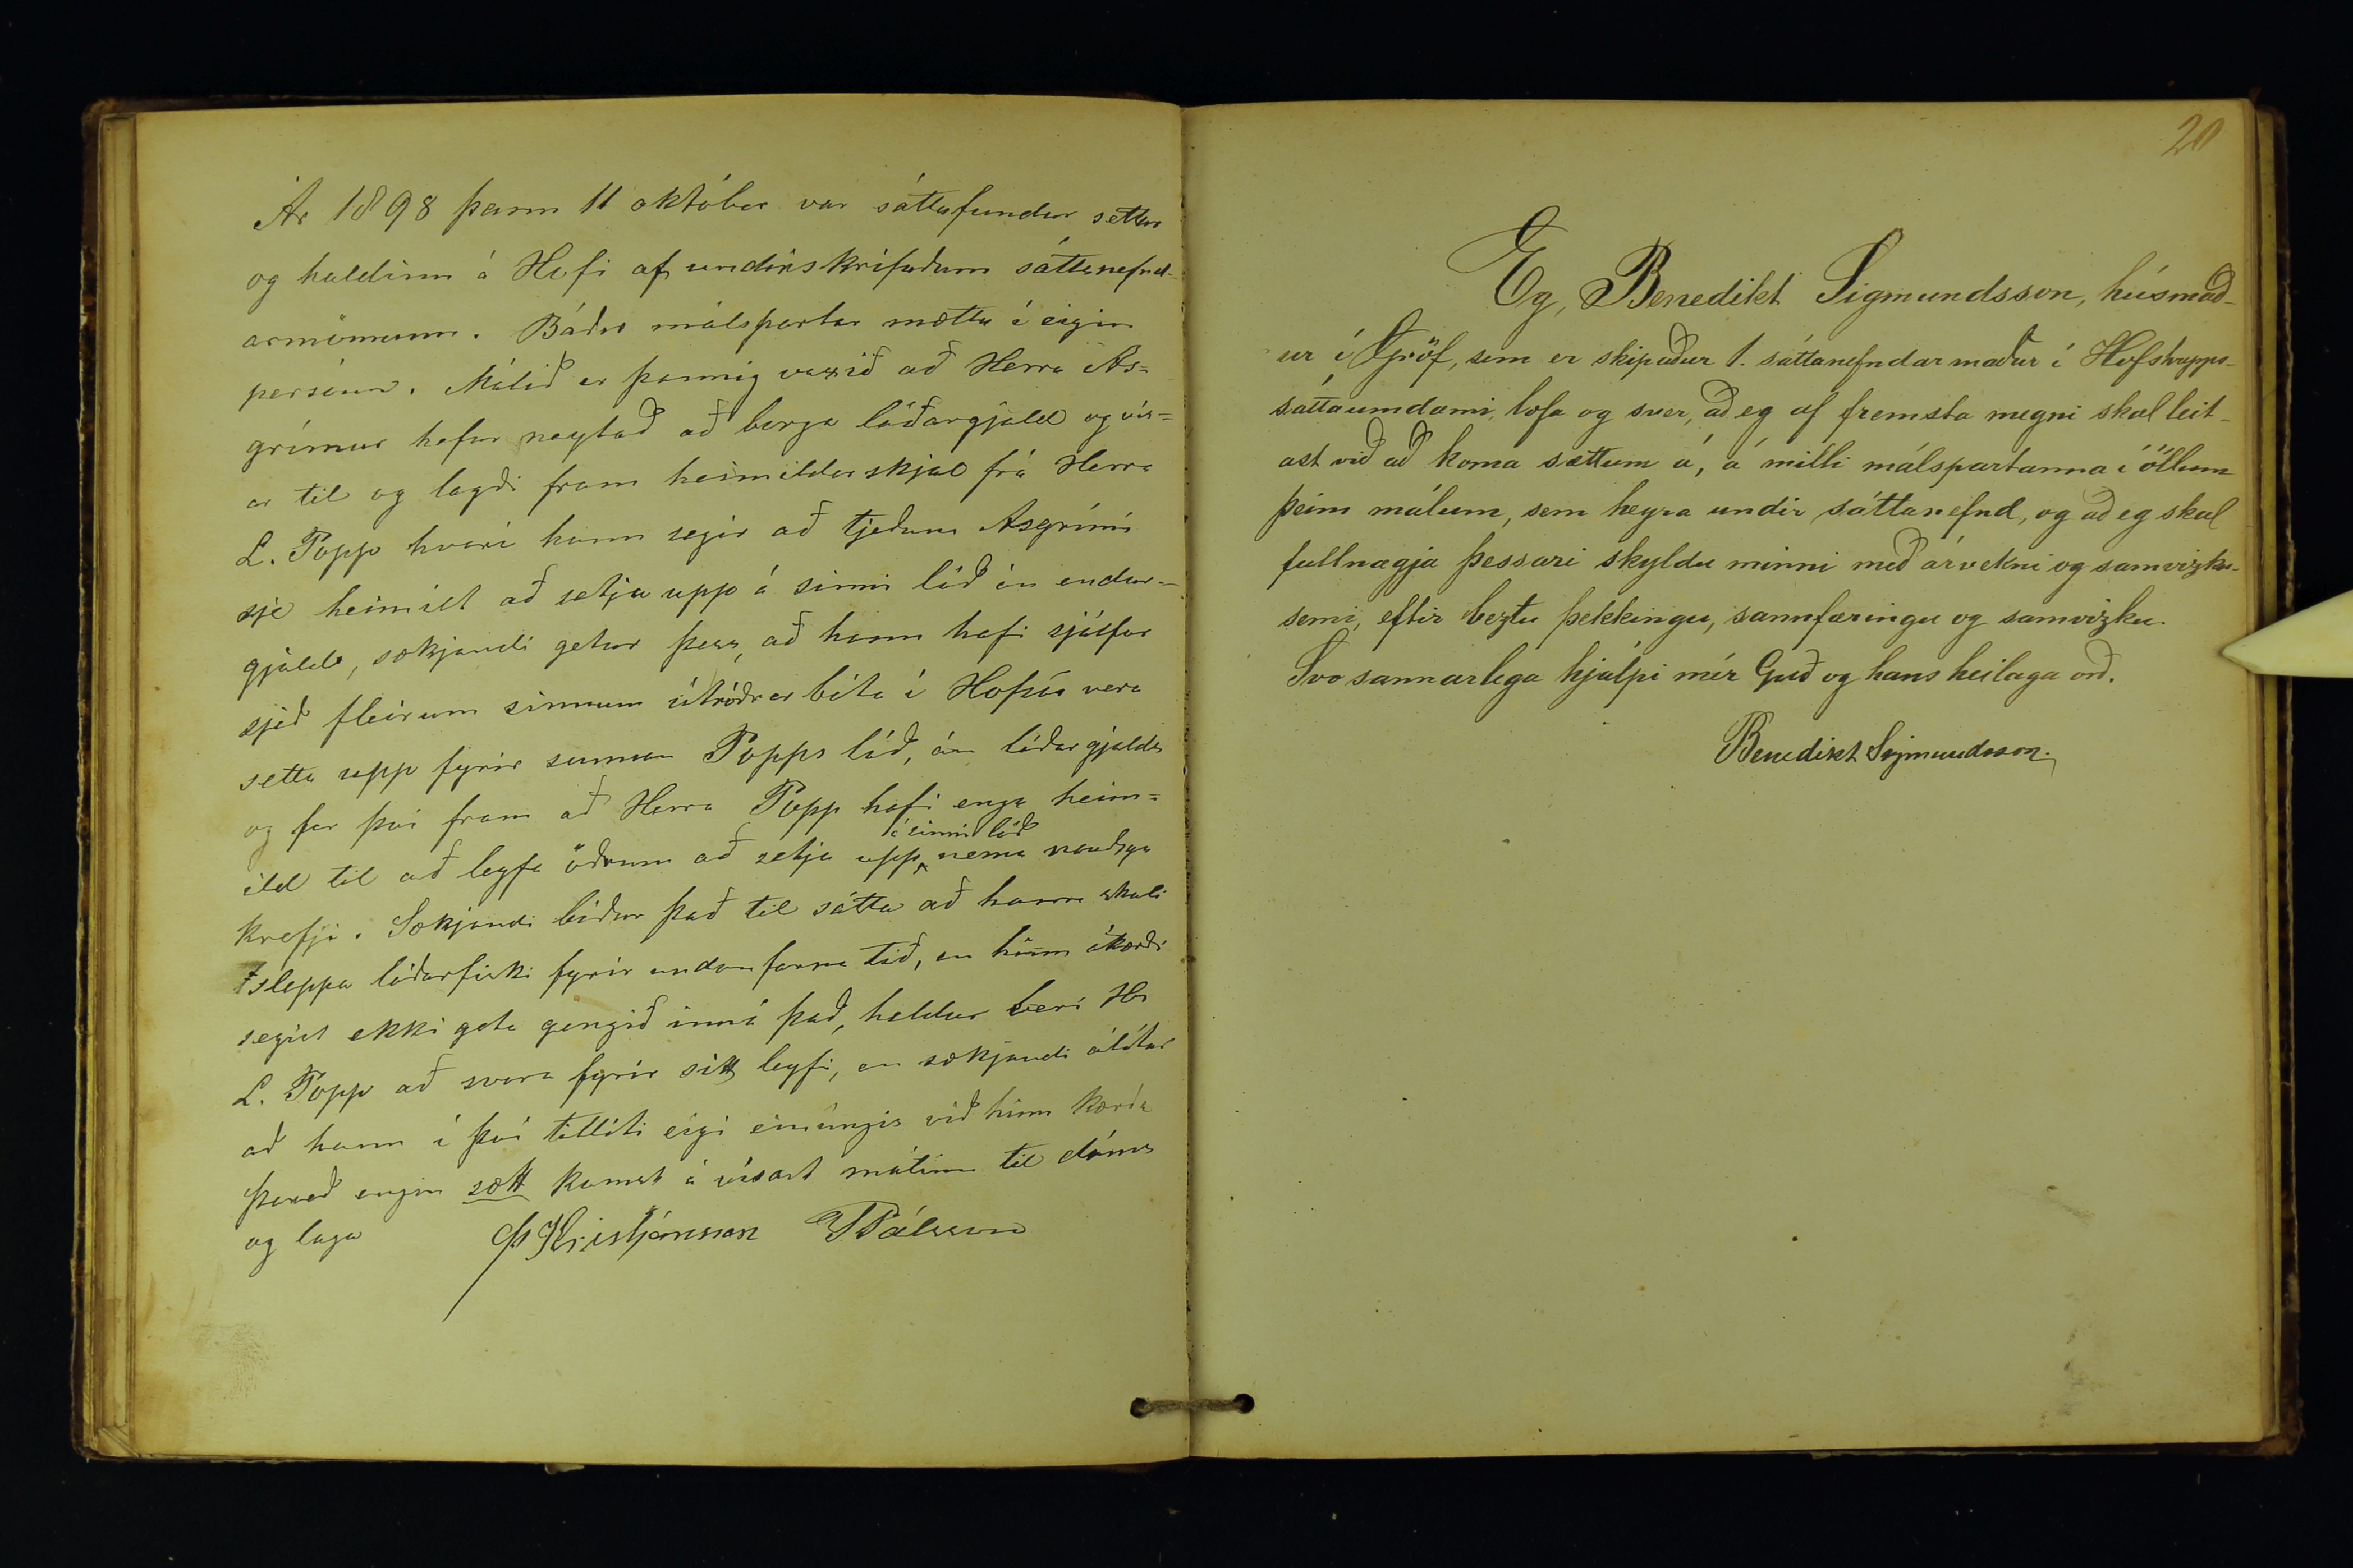 Ár 1898 þann 11 október var sáttafundur settur
og haldinn á Hofi af undirskrifuðum sáttanefnd-
armönnum. Báðir málspartar mættu í eigin
persónu. Málið er þannig vaxið að Herra Ás=
grímur hefur neytað að borga lóðargjald og vís=
ar til og lagði fram heimildarskjal frá Herra
L. Popp hvari hann segir að tjeðum Asgrími
sje heimilt að setja upp á sinni lóð án endur=
gjalds, sækjandi getur þess, að hann hafi sjálfur
sjeð fleirum sinnum útróðrar báta í Hofsós vera
setta upp fyrir sunnan Popps lóð, án lóðargjalds
og fer því fram að Herra Popp hafi enga heim=
ild til að leyfa öðrum að setja upp á sinni lóð nema nauðsyn
krefji. Sækjandi biður það til sátta að hann skuli
sleppa lóðarfiski fyrir undanfarna tíð, en hinn ákærði
segist ekki geta gengið inná það, heldur beri Hr
L. Popp að svara fyrir sitt leyfi, en sækjandi álítur
að hann í því tilliti eigi einúngis við hinn kærða
þareð engin sætt komst á vísast málinu til dóms
og laga Þ Kristjánsson TPálsson
20
Eg, Benedikt Sigmundsson, húsmað-
ur í Gröf, sem er skipaður 1. sáttanefndarmaður í Hofshrepps-
sáttaumdæmi, lofa og sver, að eg af fremsta megni skal leit-
ast við að koma sættum á, á milli málspartanna í öllum
þeim málum, sem heyra undir sáttanefnd, og að eg skal
fullnægja þessari skyldu minni með árvekni og samvizku-
semi, eftir beztu þekkingu, sannfæringu og samvizku.
Svo sannarlega hjálpi mér Guð og hans heilaga orð.
Benedikt Sigmundsson.